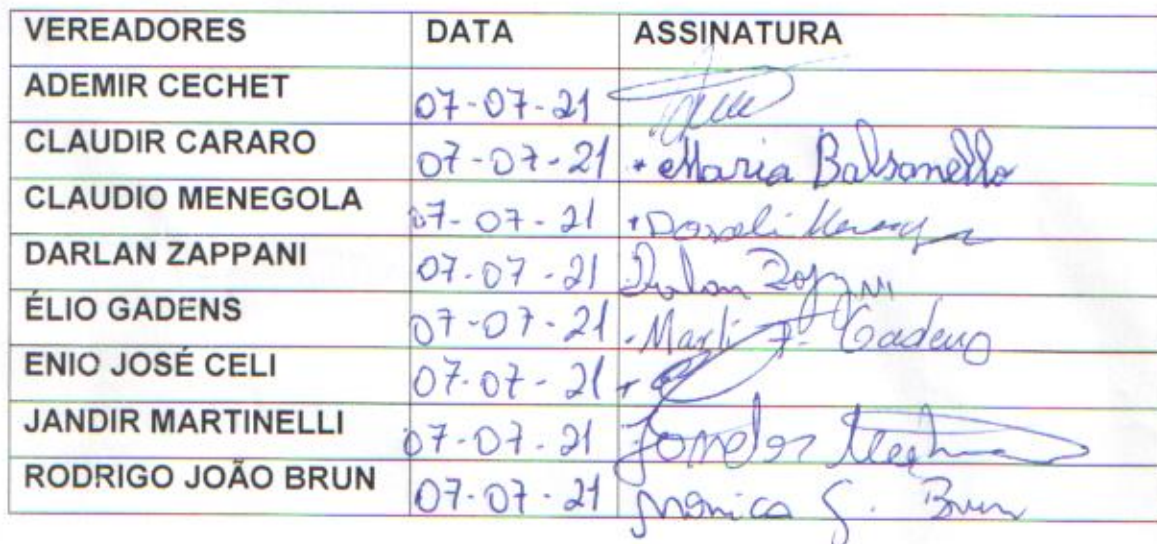 VEREADORES DATA ASSINATURA
ADEMIR CECHET 07-07-21
CLAUDIR CARARO 07-07-21 Maria Balsanello
CLAUDIO MENEGOLA 07-07-21
DARLAN ZAPPANI 07-07-21 Darlan
ÉLIO GADENS 07-07-21 Marli F. Gadens
ENIO JOSÉ CELI 07-07-21
JANDIR MARTINELLI 07-07-21
RODRIGO JOÃO BRUN 07-07-21 Monica G. Brun